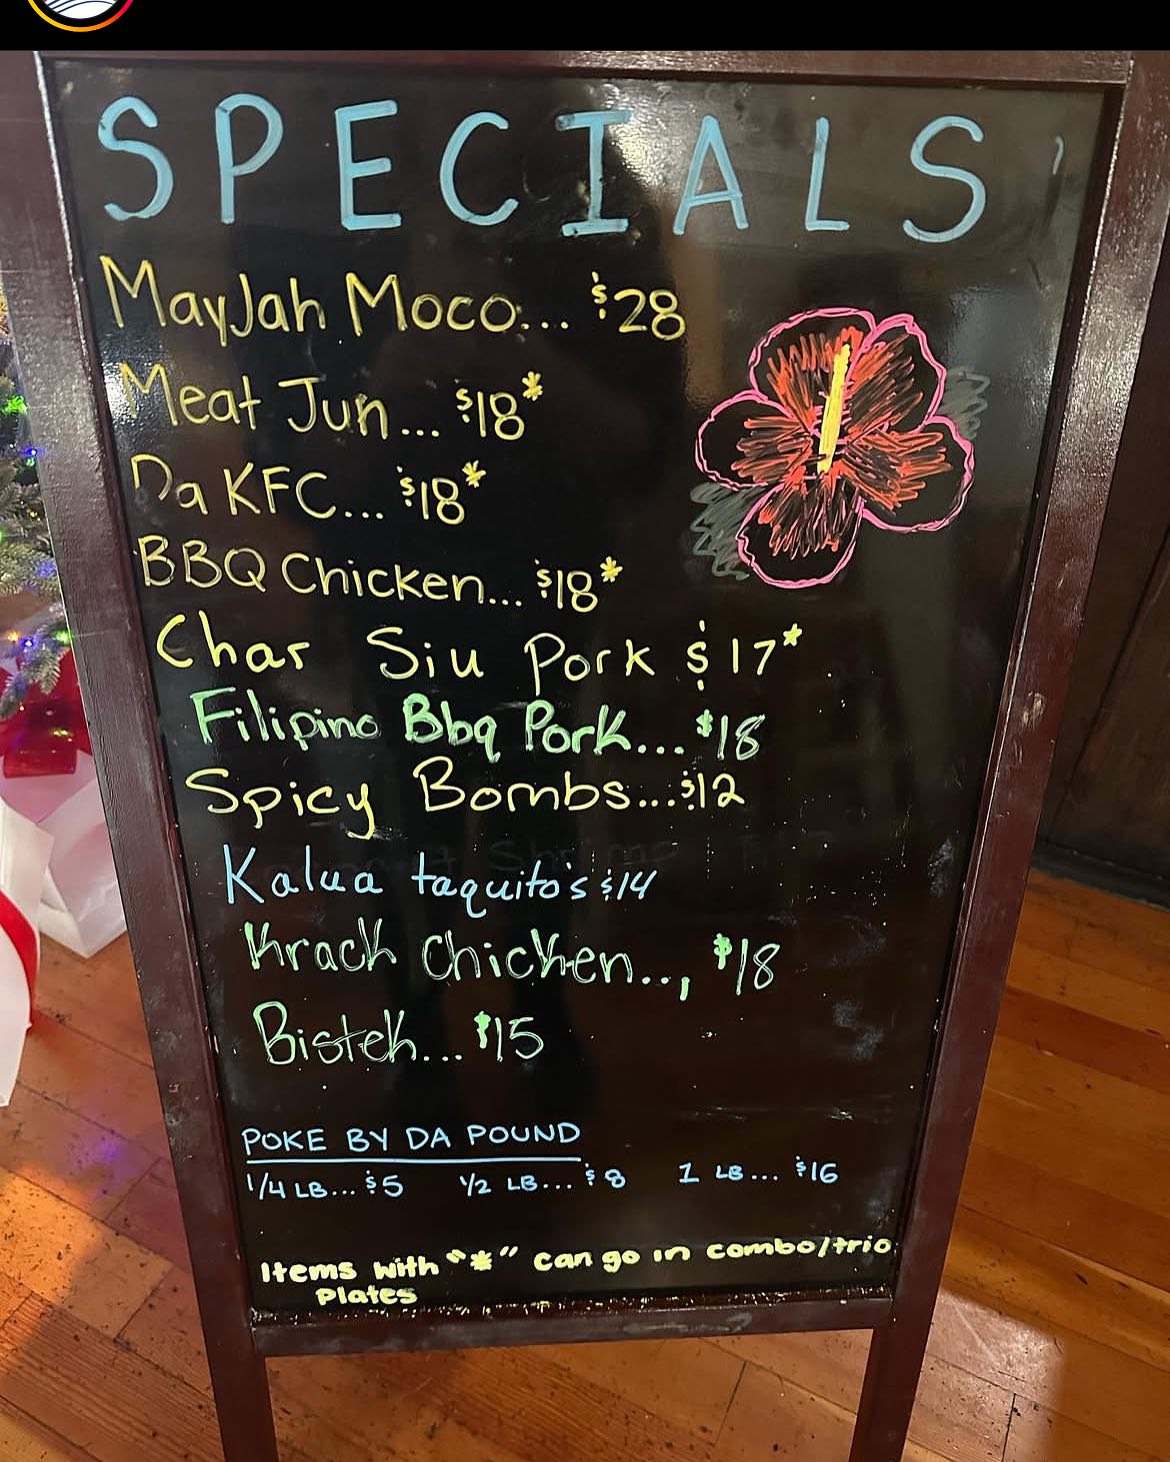 SPECIALS
MayJah Moco... $28
Meat Jun... $18*
Da KFC... $18*
BBQ Chicken... $18*
Char Siu Pork $17*
Filipino Bbq Pork... $18
Spicy Bombs... $12
Kalua taquito's $14
Krack Chicken.., $18
Bistek... $15
POKE BY DA POUND
1/4 LB... $5 1/2 LB... $8 1 LB... $16
Items with "*" can go in combo/trio
Plates